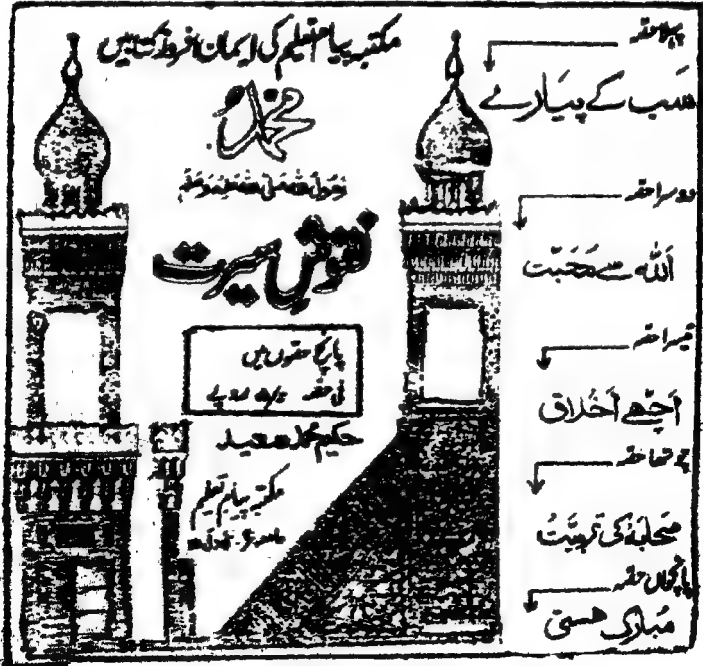 مکتبہ پیام تعلیم کی ایمان افروز کتابیں
محمد
رسول اللہ صلی اللہ علیہ وسلم
نقوش سیرت
پانچ حصوں میں
فی حصہ روپے
حکیم محمد سعید
مکتبہ پیام تعلیم
جامعہ نگر
پہلا حصہ
سب کے پیارے
دوسرا حصہ
اللہ سے محبت
تیسرا حصہ
اچھے اخلاق
چوتھا حصہ
صحابہؓ کی تربیت
پانچواں حصہ
مبارک ہستی